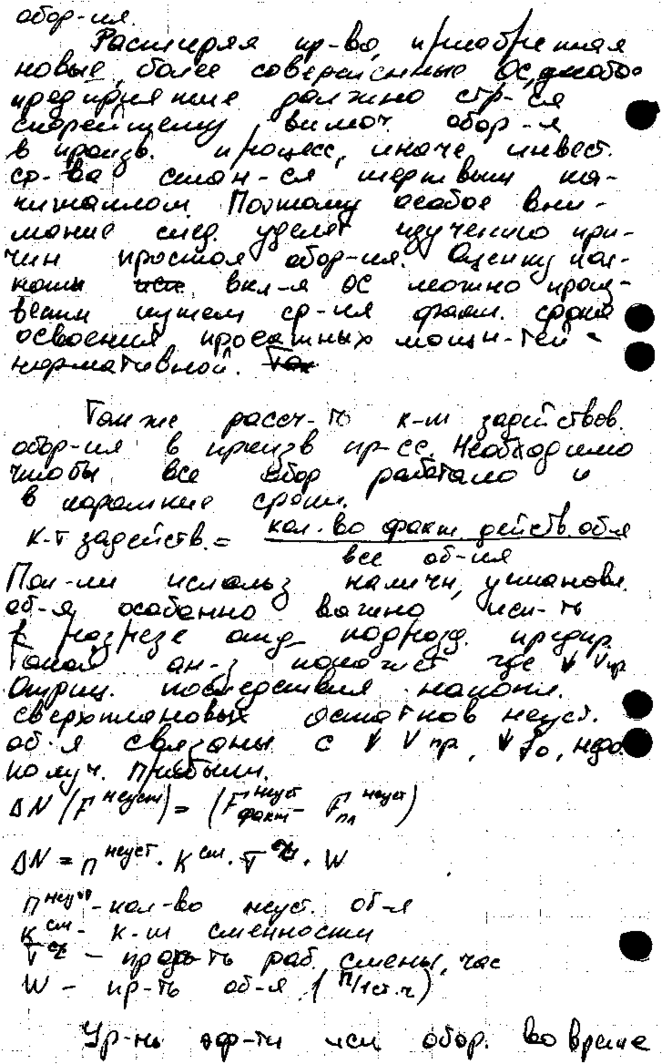 обор-ия.
Расширяя пр-во, приобретая
новые, более совершенные ОС,
предприятие должно стр-ся
скорейшему включ. обор-я
в произв. процесс, иначе инвест.
ср-ва стан-ся мертвым ка-
питалом. Поэтому особое вни-
мание след. уделят изучению при-
чин простоя обор-ия. Оценку пол-
ноты вкл-я ОС можно прои-
вести путем ср-ия факт. срока
освоения проектных мощн-тей с
нормативной.
Также рассч-ть к-т задействов.
обор-ия в произв пр-се. Необходимо
чтобы все обор работало и
в короткие сроки.
к-т задейств. = кол-во факт. действ. об-я
все об-ия
Пол-ли использ наличн, установл.
об-я особенно важно исп-ть
в разрезе отд. подразд. предпр.
Такой ан-з покажет где ↓ Vпр
Отриц. последствия накопл.
сверхплановых остатков неуст.
об-я связаны с ↓ V пр, ↓ fо, недо
получ. прибыли.
ΔN (F неуст) = (F неуст факт - F неуст пл)
ΔN = n неуст . K см . T . W
n неуст - кол-во неуст. об-я
K см - к-т сменности
T - прод-ть раб. смены, час
W - пр-ть об-я
Ур-нь эф-ти исп обор. во време